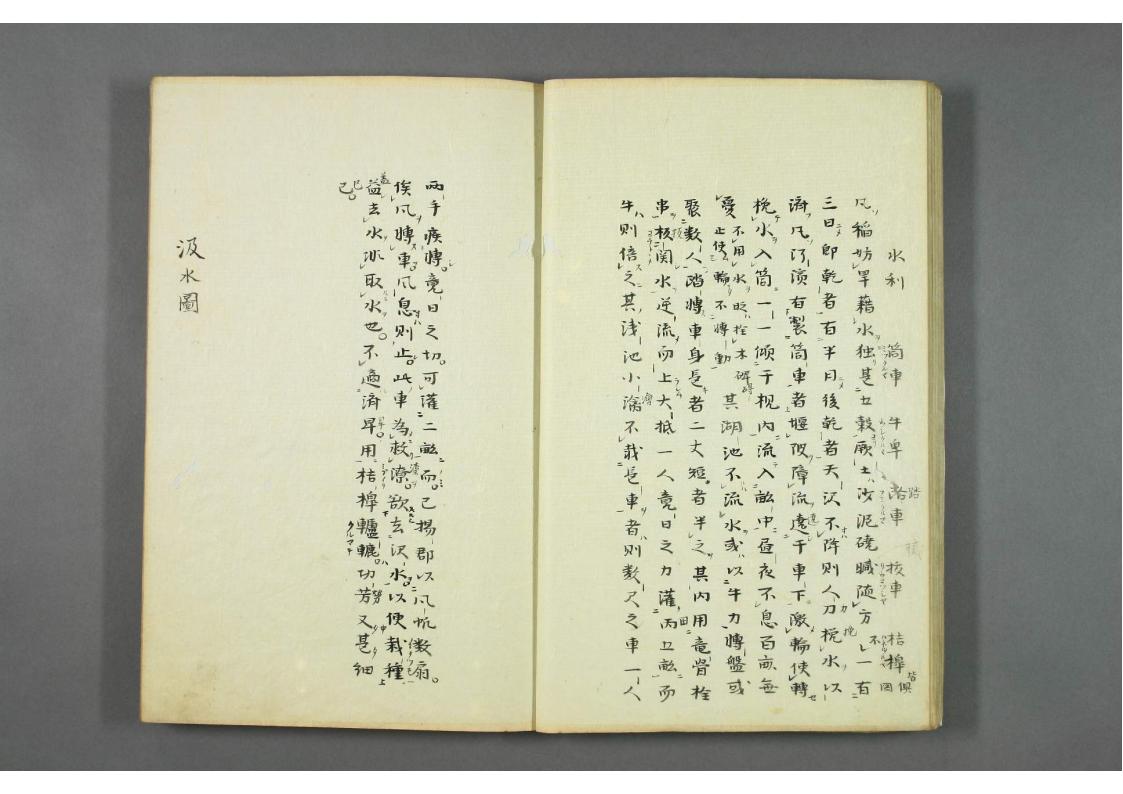 水利 筒車 牛車 踏車 抜車 桔槹 皆具図
凡稲妨旱藉水独甚五穀厥土沙泥磽膩随方不一有
三日即乾者有半月後乾者天沢不降則人力挽水以
済凡河濱有製筒車者堰陂障流遶于車下激輪使轉
挽水入筒一一傾于枧内流入畝中昼夜不息百畝無
憂 不用水時栓木碍止使輪不轉動 其湖池不流水或以牛力轉盤或
聚數人踏轉車身長者二丈短者半之其内用竜骨栓
串板関水逆流而上大抵一人竟日之力灌田五畝而
牛則倍之其浅池小澮不載長車者則数尺之車一人
両手疾轉竟日之功可灌二畝而已揚郡以風帆数扇
俟風轉車風息則止此車為救潦欲去沢水以便栽種
益去水非取水也不適済旱用桔槹轆轤功労又甚細
已
汲水圖